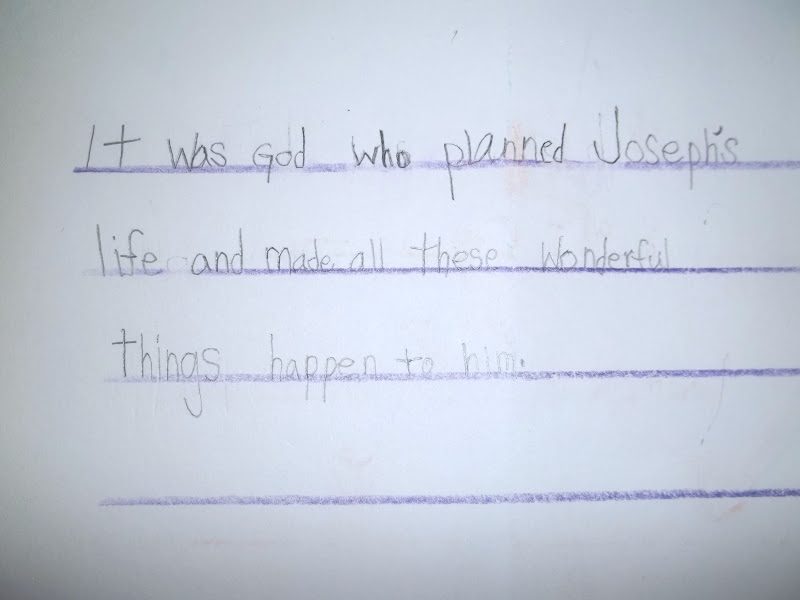 It was God who planned Joseph's
life and made all these wonderful
things happen to him.